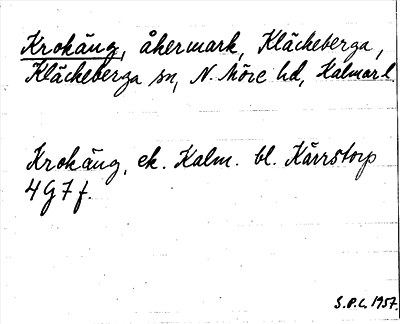 Krokäng, åkermark, Kläckeberga,
Kläckeberga sn, N. Möre hd, Kalmar l.
Krokäng, ek. Kalm. bl. Kärrstorp
4G7f.
S.P.L. 1957.